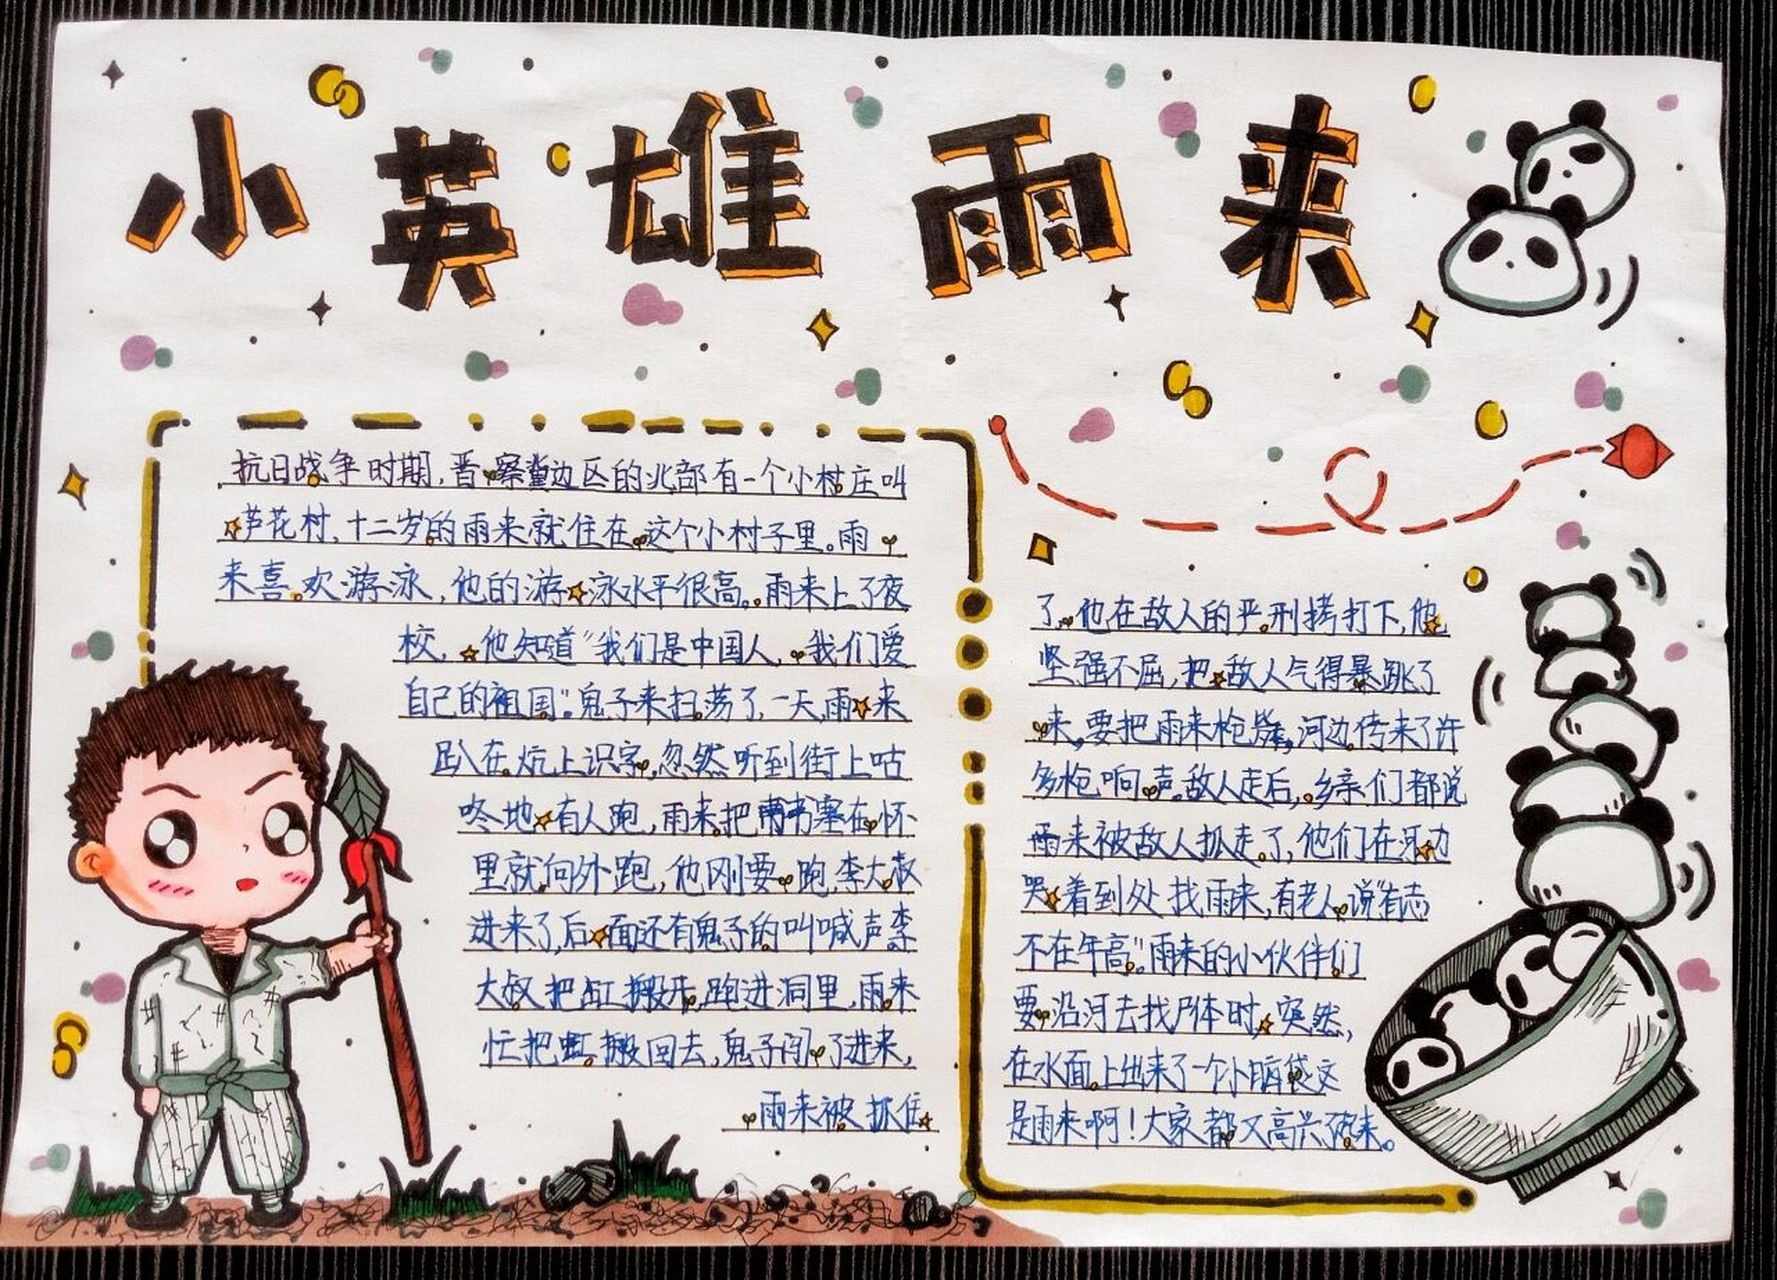 小英雄雨来
抗日战争时期,晋察冀边区的北部有一个小村庄叫
芦花村,十二岁的雨来就住在这个小村子里。雨
来喜欢游泳,他的游泳水平很高。雨来上了夜
校,他知道“我们是中国人,我们爱
自己的祖国”。鬼子来扫荡了,一天,雨来
趴在炕上识字,忽然听到街上咕
咚地有人跑,雨来把书塞在怀
里就向外跑,他刚要跑,李大叔
进来了,后面还有鬼子的叫喊声李
大叔把缸搬开,跑进洞里,雨来
忙把缸搬回去,鬼子闯了进来,
雨来被抓住
了,他在敌人的严刑拷打下,他
坚强不屈,把敌人气得暴跳了
来,要把雨来枪毙,河边传来了许
多枪响声。敌人走后,乡亲们都说
雨来被敌人抓走了,他们在
哭着到处找雨来,有老人说“有志
不在年高”。雨来的小伙伴们
要沿河去找尸体时,突然,
在水面上出来了一个小脑袋这
是雨来啊!大家都又高兴来。